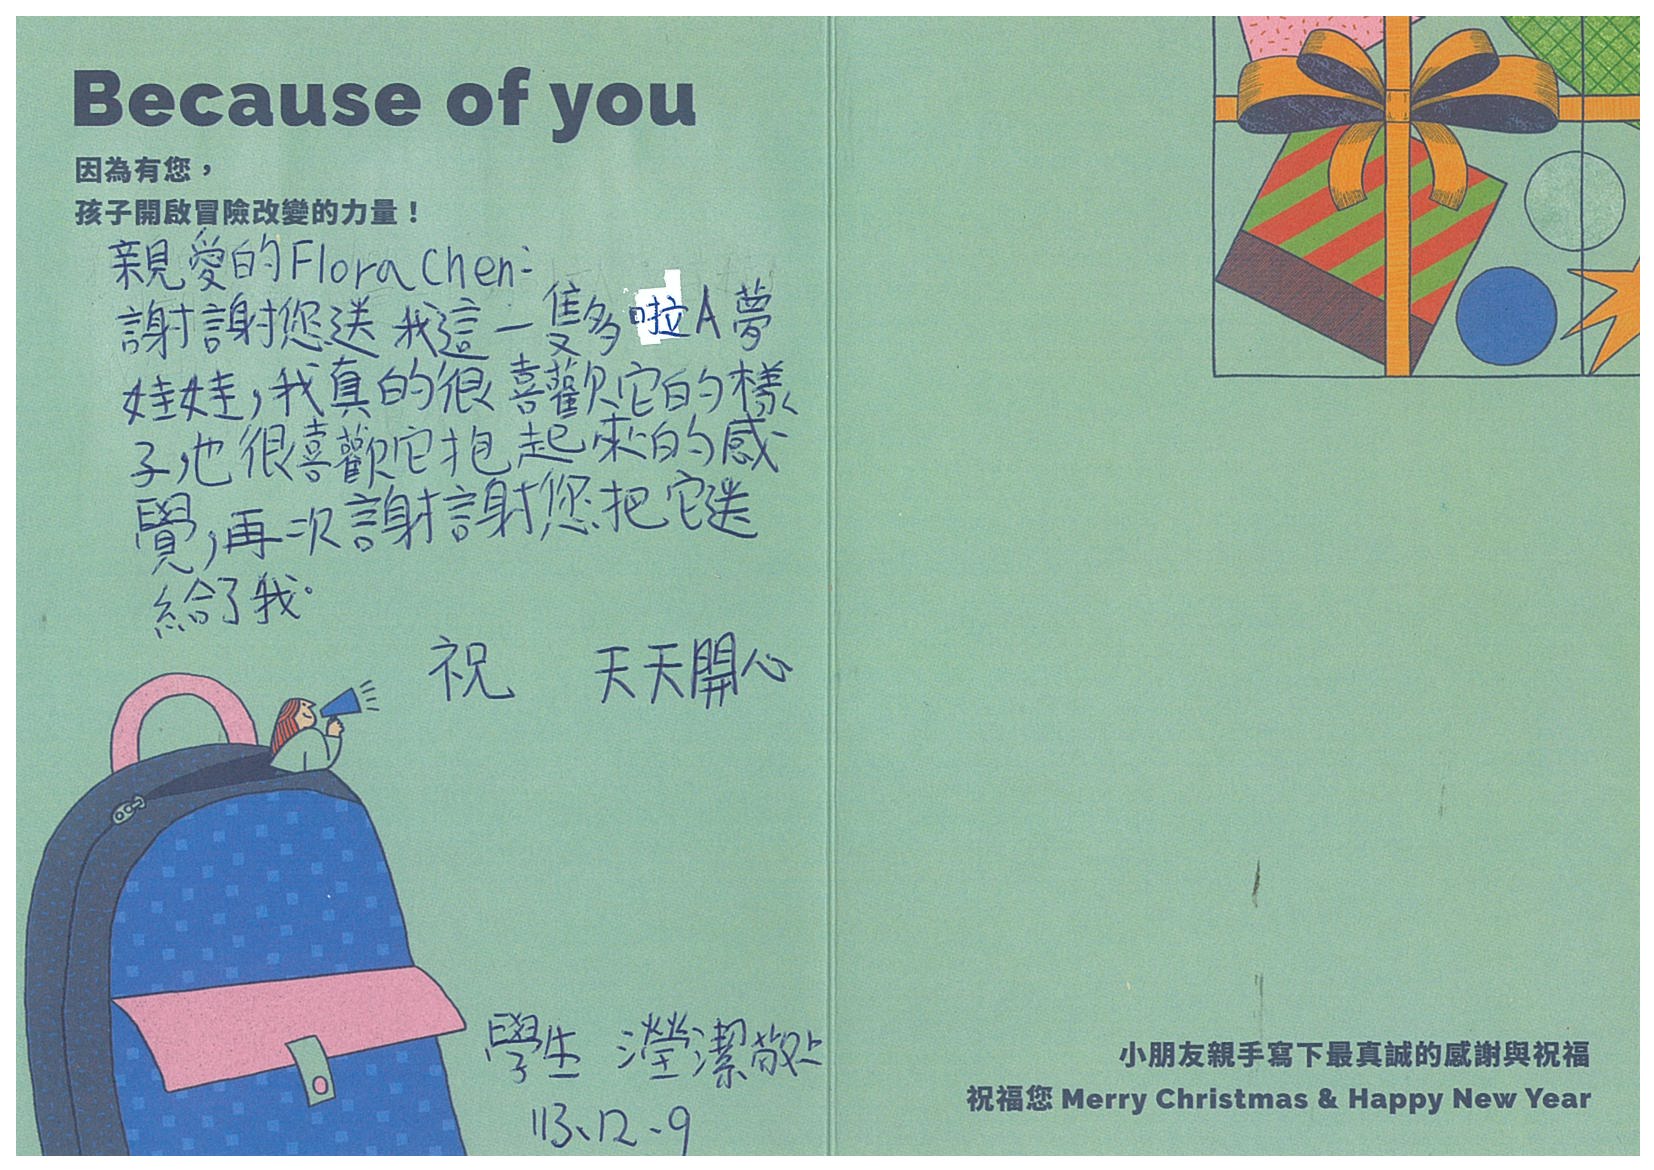 Because of you
因為有您，
孩子開啟冒險改變的力量！
親愛的Flora Chen:
謝謝您送我這一隻多啦A夢
娃娃,我真的很喜歡它的樣
子,也很喜歡它抱起來的感
覺,再次謝謝您把它送
給了我.
祝 天天開心
學生 瀅潔敬上
113.12.9
小朋友親手寫下最真誠的感謝與祝福
祝福您 Merry Christmas & Happy New Year